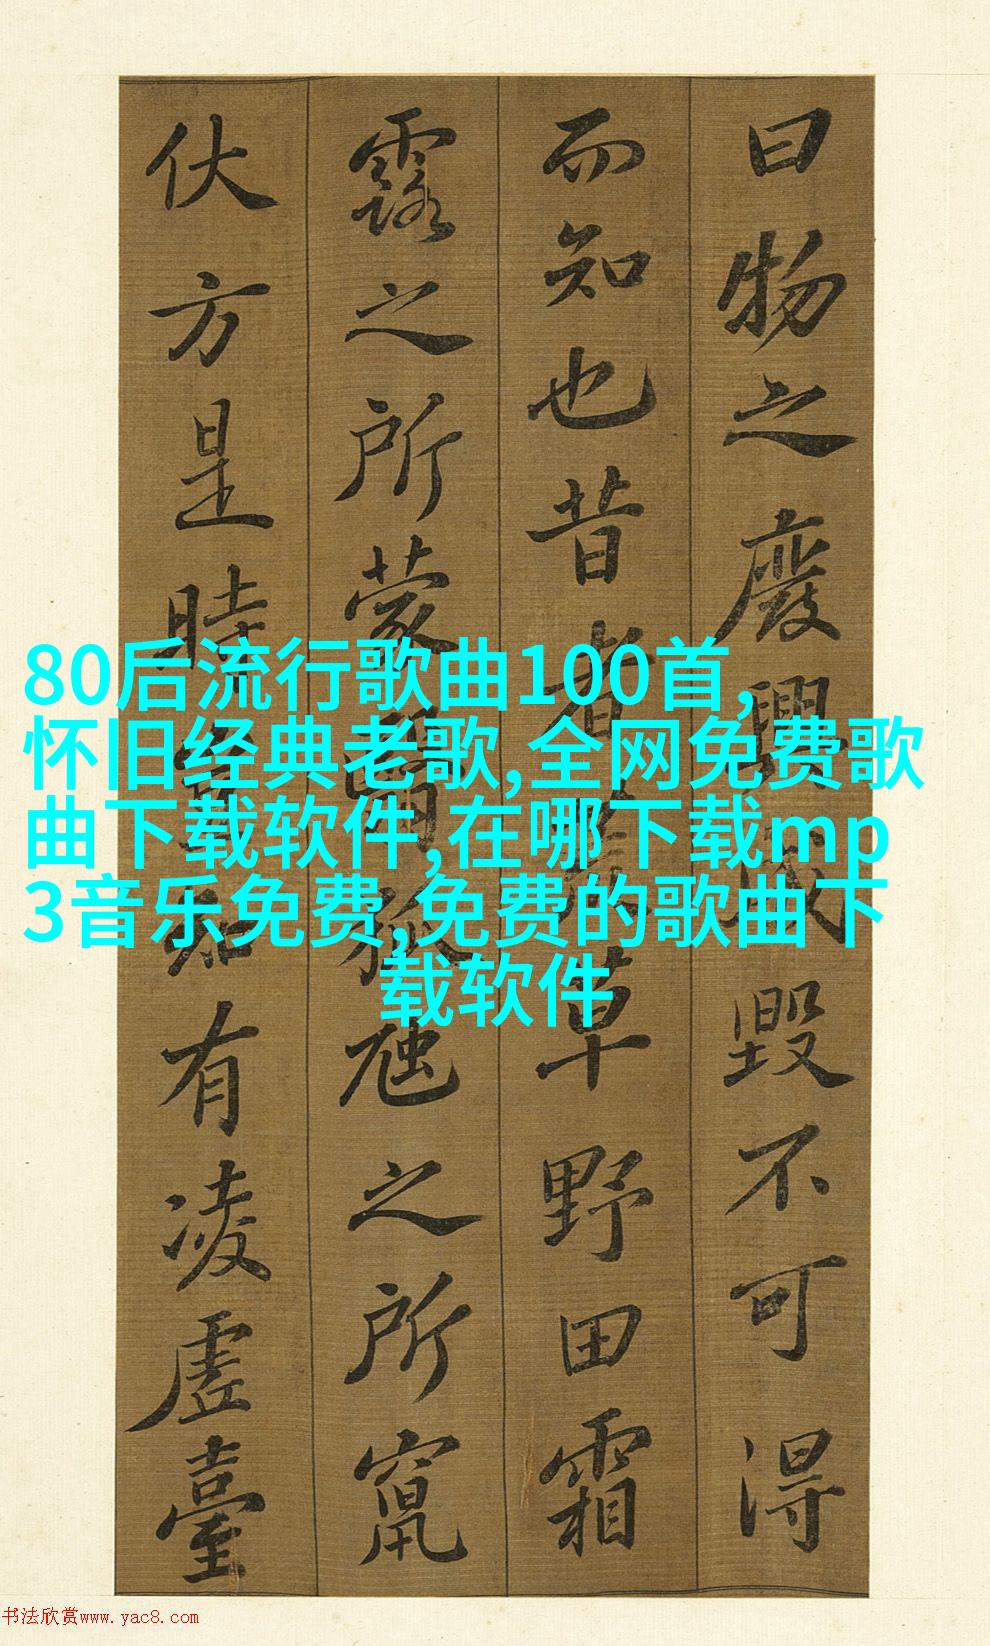 曰物之廢興成毀不可得
而知也昔者荒草野田霜
露之所蒙翳狐虺之所竄
伏方是時豈知有凌虛臺
80后流行歌曲100首,
怀旧经典老歌,全网免费歌
曲下载软件,在哪下载mp
3音乐免费,免费的歌曲下
载软件
书法欣赏www.yac8.com